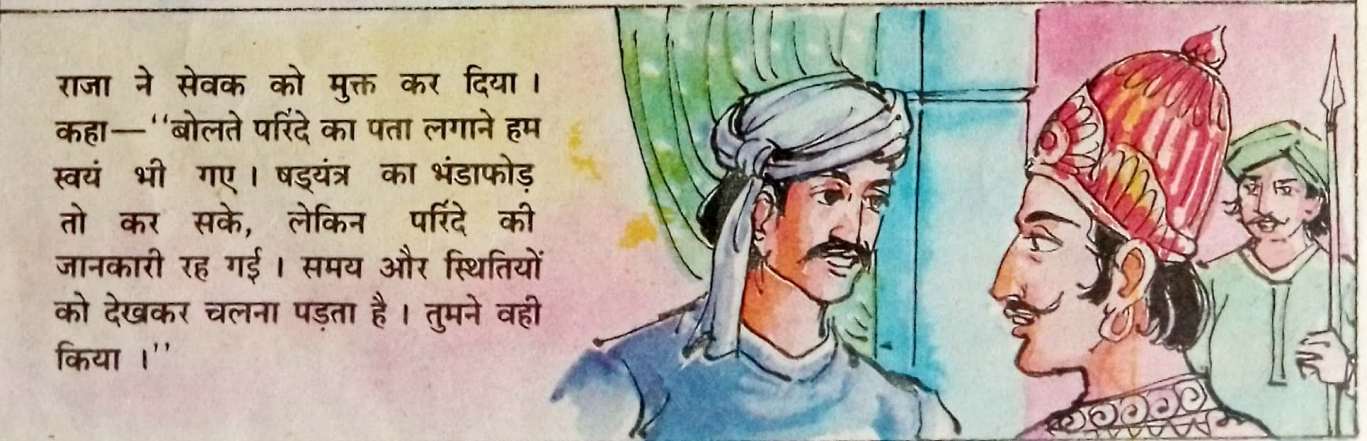 राजा ने सेवक को मुक्त कर दिया ।
कहा—‘‘बोलते परिंदे का पता लगाने हम
स्वयं भी गए । षड्यंत्र का भंडाफोड़
तो कर सके, लेकिन परिंदे की
जानकारी रह गई । समय और स्थितियों
को देखकर चलना पड़ता है । तुमने वही
किया ।’’